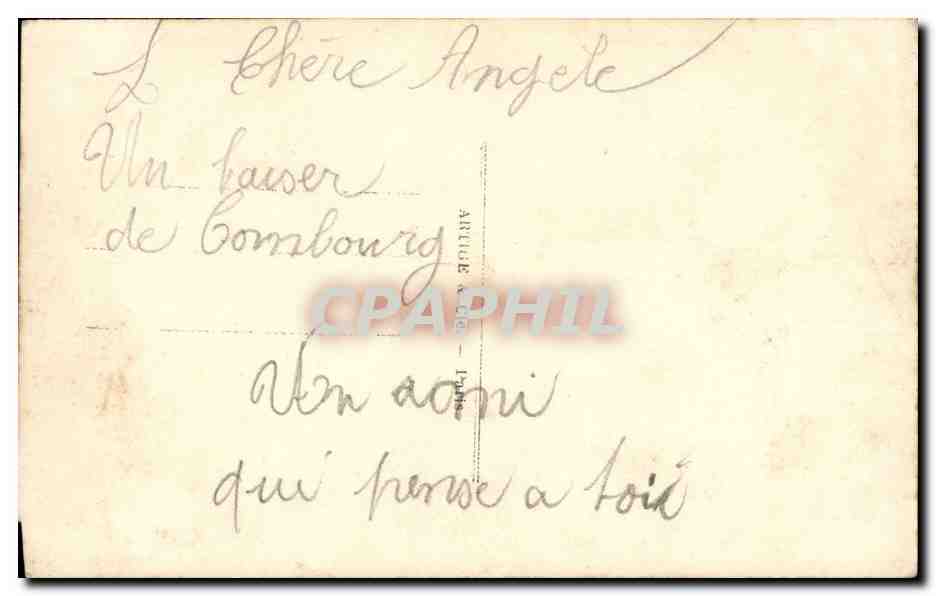 Chère Angele
Un baiser
de Combourg
ARTIGE & Cie. - Paris
CPAPHIL
Un ami
qui pense a toi